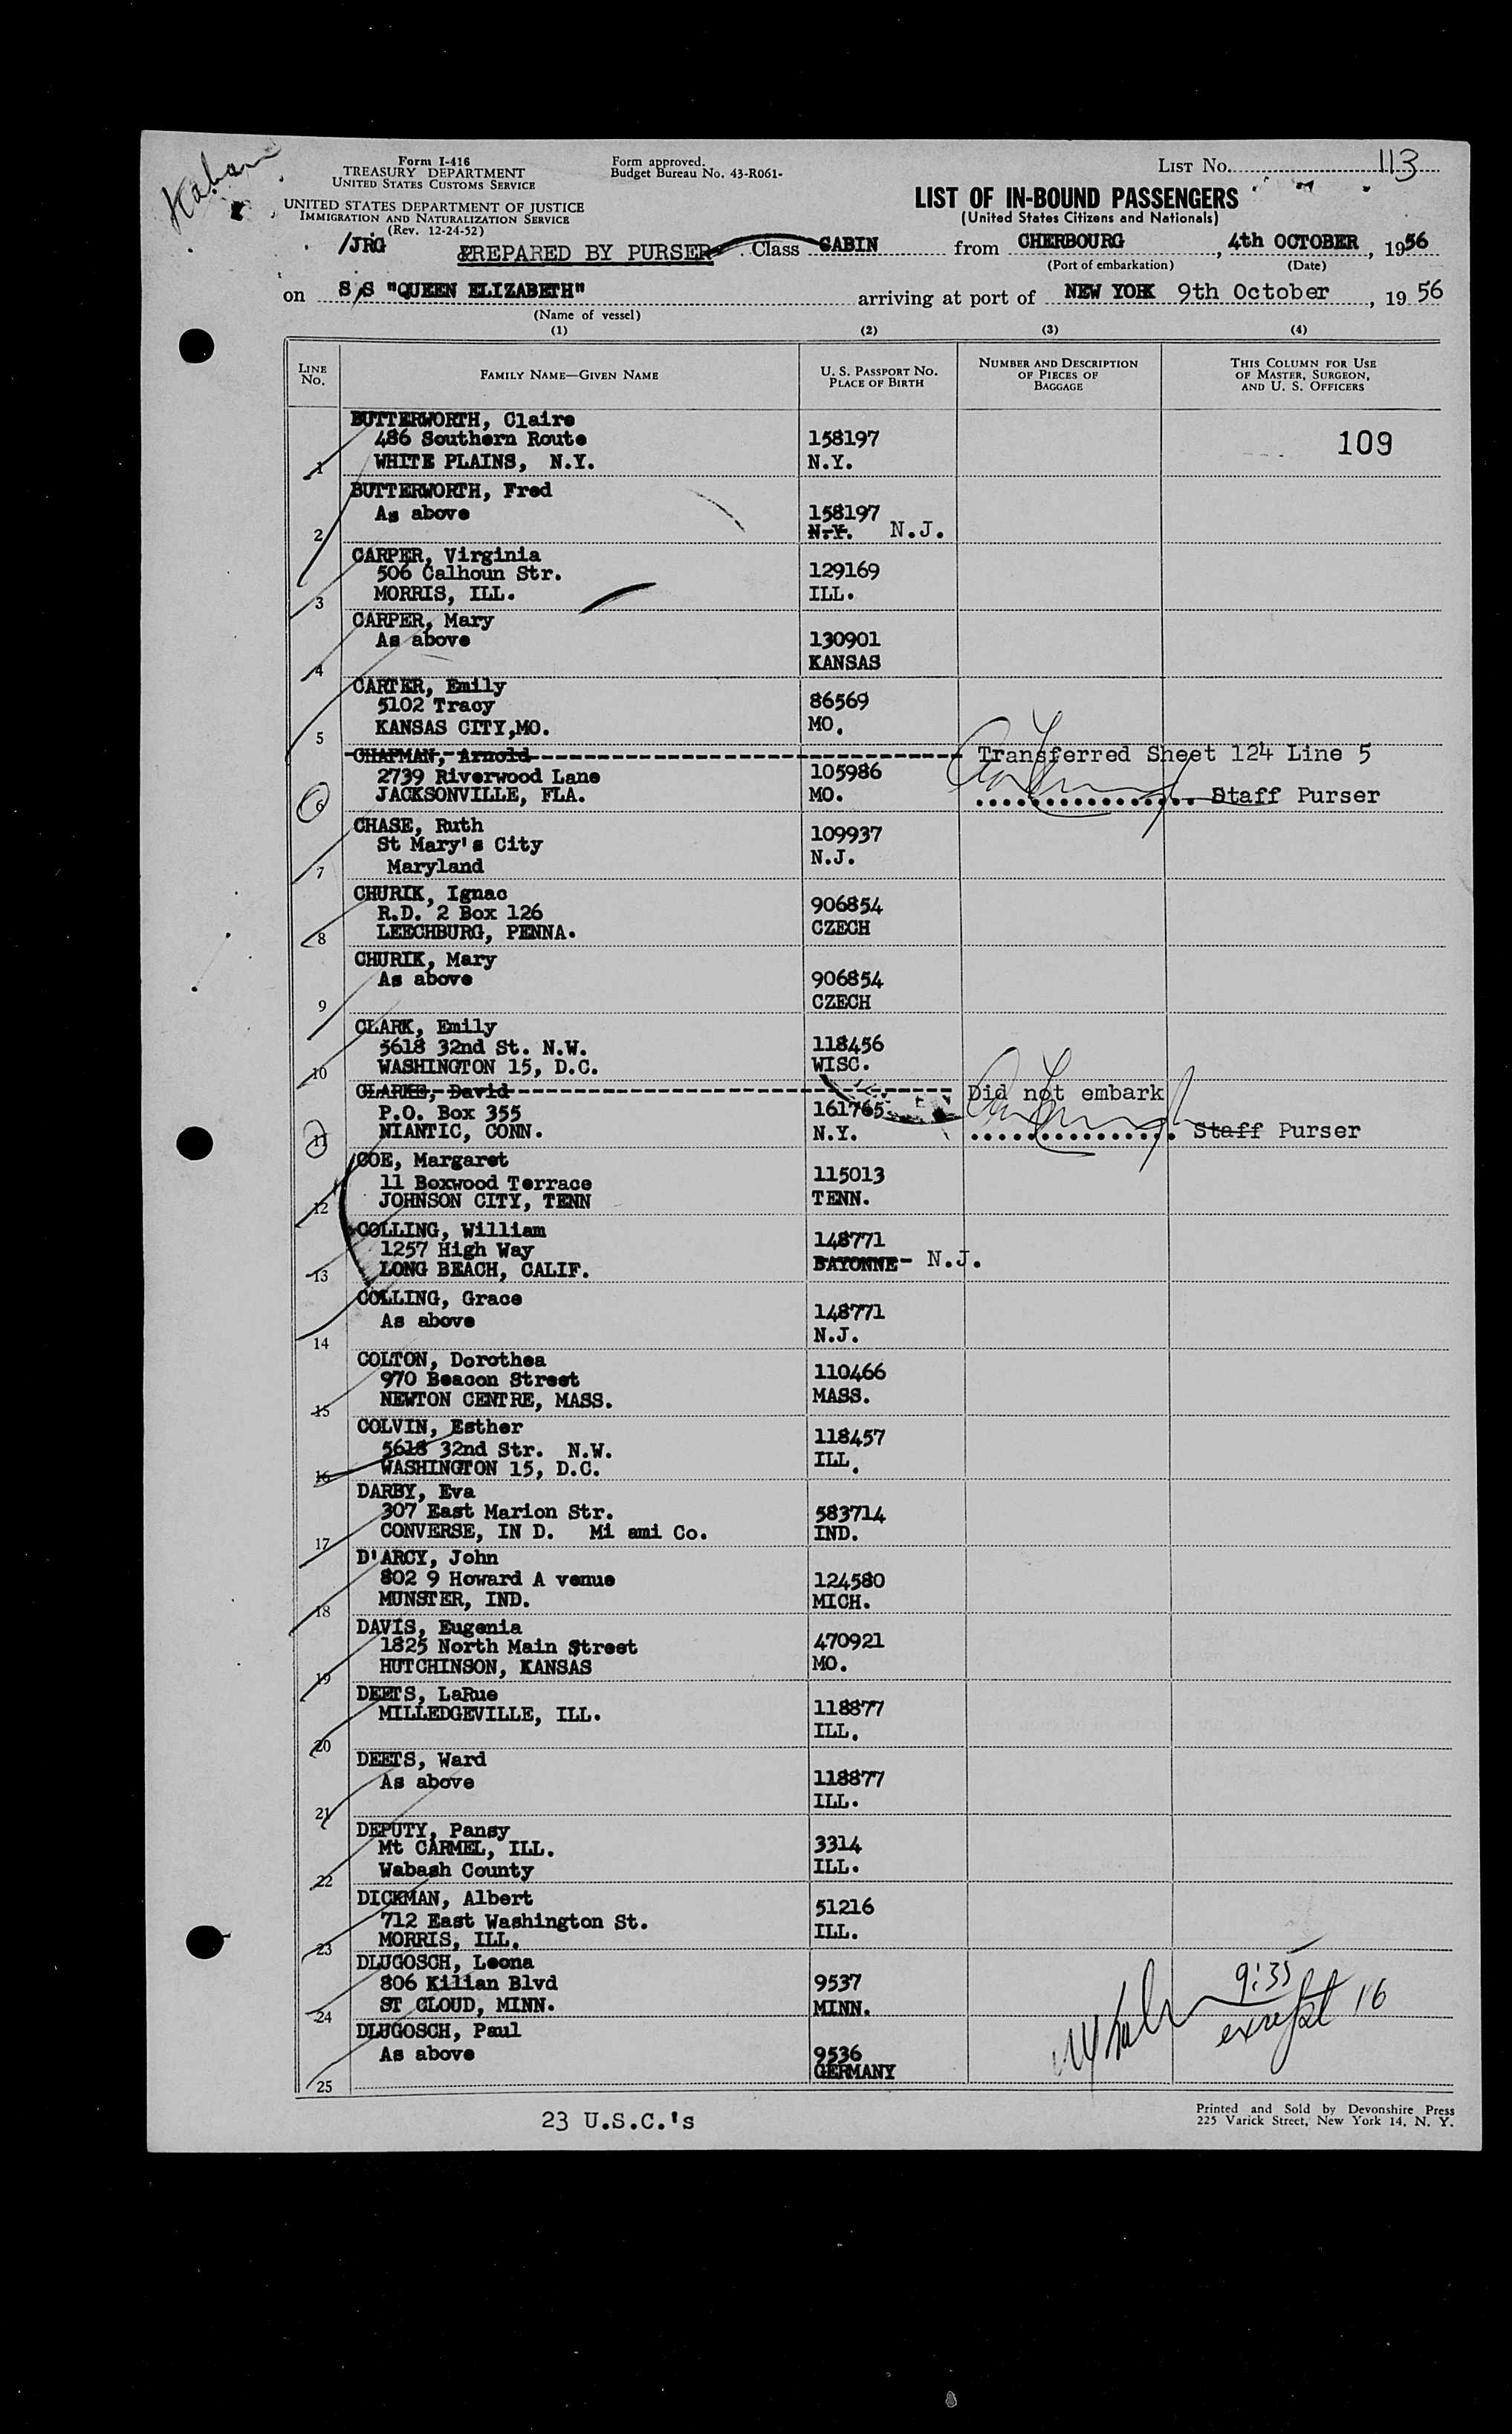 Kahan
Form I-416
TREASURY DEPARTMENT
UNITED STATES CUSTOMS SERVICE
Form approved.
Budget Bureau No. 43-R061-
LIST No. 113
UNITED STATES DEPARTMENT OF JUSTICE
IMMIGRATION AND NATURALIZATION SERVICE
(Rev. 12-24-52)
LIST OF IN-BOUND PASSENGERS
(United States Citizens and Nationals)
/JRG PREPARED BY PURSER Class CABIN from CHERBOURG, 4th OCTOBER, 1956
(Port of embarkation) (Date)
on S/S "QUEEN ELIZABETH" arriving at port of NEW YORK 9th October, 1956
(Name of vessel)
(1) (2) (3) (4)
LINE No. FAMILY NAME—GIVEN NAME U. S. PASSPORT No. PLACE OF BIRTH NUMBER AND DESCRIPTION OF PIECES OF BAGGAGE THIS COLUMN FOR USE OF MASTER, SURGEON, AND U. S. OFFICERS
BUTTERWORTH, Claire
486 Southern Route 158197 109
1 WHITE PLAINS, N.Y. N.Y.
BUTTERWORTH, Fred
As above 158197
2 N.Y. N.J.
CARPER, Virginia
506 Calhoun Str. 129169
3 MORRIS, ILL. ILL.
CARPER, Mary
As above 130901
4 KANSAS
CARTER, Emily
5102 Tracy 86569
5 KANSAS CITY,MO. MO.
CHAPMAN, Arnold Transferred Sheet 124 Line 5
2739 Riverwood Lane 105986
6 JACKSONVILLE, FLA. MO. Staff Purser
CHASE, Ruth
St Mary's City 109937
7 Maryland N.J.
CHURIK, Ignac
R.D. 2 Box 126 906854
8 LEECHBURG, PENNA. CZECH
CHURIK, Mary
As above 906854
9 CZECH
CLARK, Emily
5618 32nd St. N.W. 118456
10 WASHINGTON 15, D.C. WISC.
CLARKE, David Did not embark
P.O. Box 355 161765
11 NIANTIC, CONN. N.Y. Staff Purser
COE, Margaret
11 Boxwood Terrace 115013
12 JOHNSON CITY, TENN TENN.
COLLING, William
1257 High Way 148771
13 LONG BEACH, CALIF. BAYONNE- N.J.
COLLING, Grace
As above 148771
14 N.J.
COLTON, Dorothea
970 Beacon Street 110466
15 NEWTON CENTRE, MASS. MASS.
COLVIN, Esther
5618 32nd Str. N.W. 118457
16 WASHINGTON 15, D.C. ILL.
DARBY, Eva
307 East Marion Str. 583714
17 CONVERSE, IN D. Mi ami Co. IND.
D'ARCY, John
802 9 Howard A venue 124580
18 MUNSTER, IND. MICH.
DAVIS, Eugenia
1825 North Main Street 470921
19 HUTCHINSON, KANSAS MO.
DEETS, LaRue
MILLEDGEVILLE, ILL. 118877
20 ILL.
DEETS, Ward
As above 118877
21 ILL.
DEPUTY, Pansy
Mt CARMEL, ILL. 3314
22 Wabash County ILL.
DICKMAN, Albert
712 East Washington St. 51216
23 MORRIS, ILL. ILL.
DLUGOSCH, Leona
806 Kilian Blvd 9537 9:35
24 ST CLOUD, MINN. MINN. except 16
DLUGOSCH, Paul
As above 9536
25 GERMANY
23 U.S.C.'s
Printed and Sold by Devonshire Press
225 Varick Street, New York 14, N. Y.